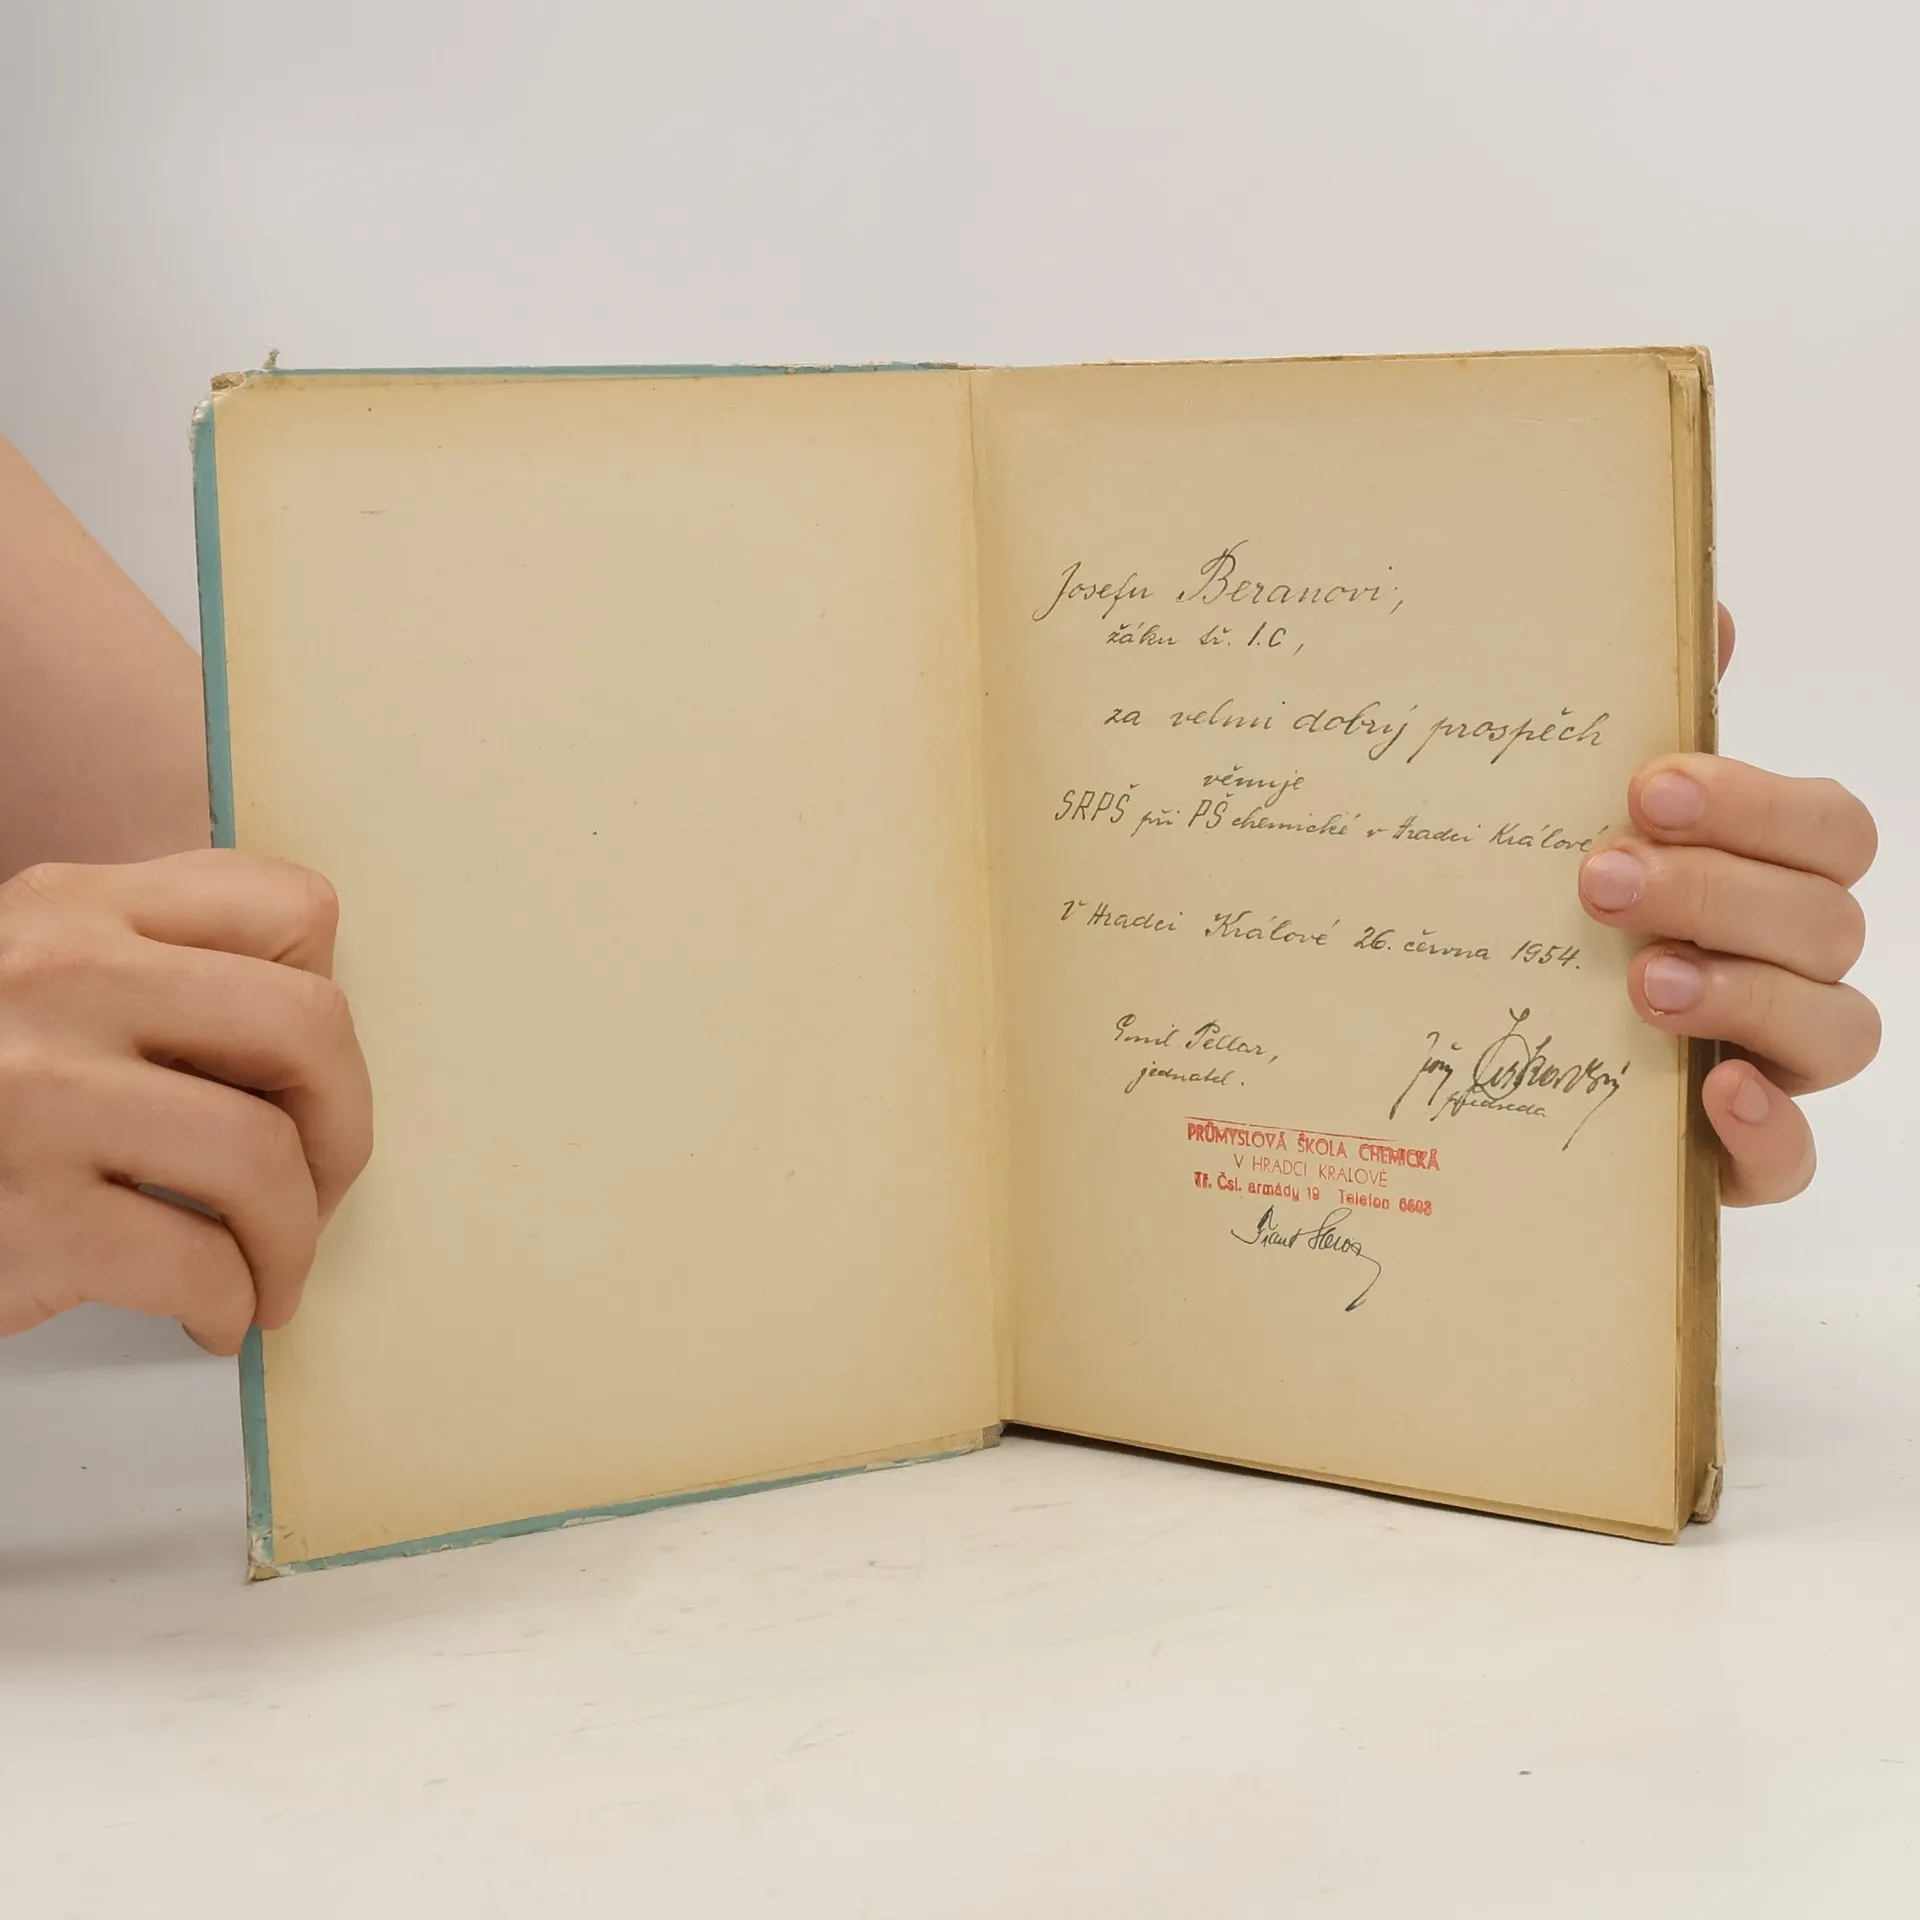 Josefu Beranovi,
žáku tř. 1.C,
za velmi dobrý prospěch
věnuje
SRPŠ při PŠ chemické v Hradci Králové
V Hradci Králové 26. června 1954.
Emil Pellar,
jednatel.
předseda
PRŮMYSLOVÁ ŠKOLA CHEMICKÁ
V HRADCI KRÁLOVÉ
Tř. Čsl. armády 19 Telefon 6603